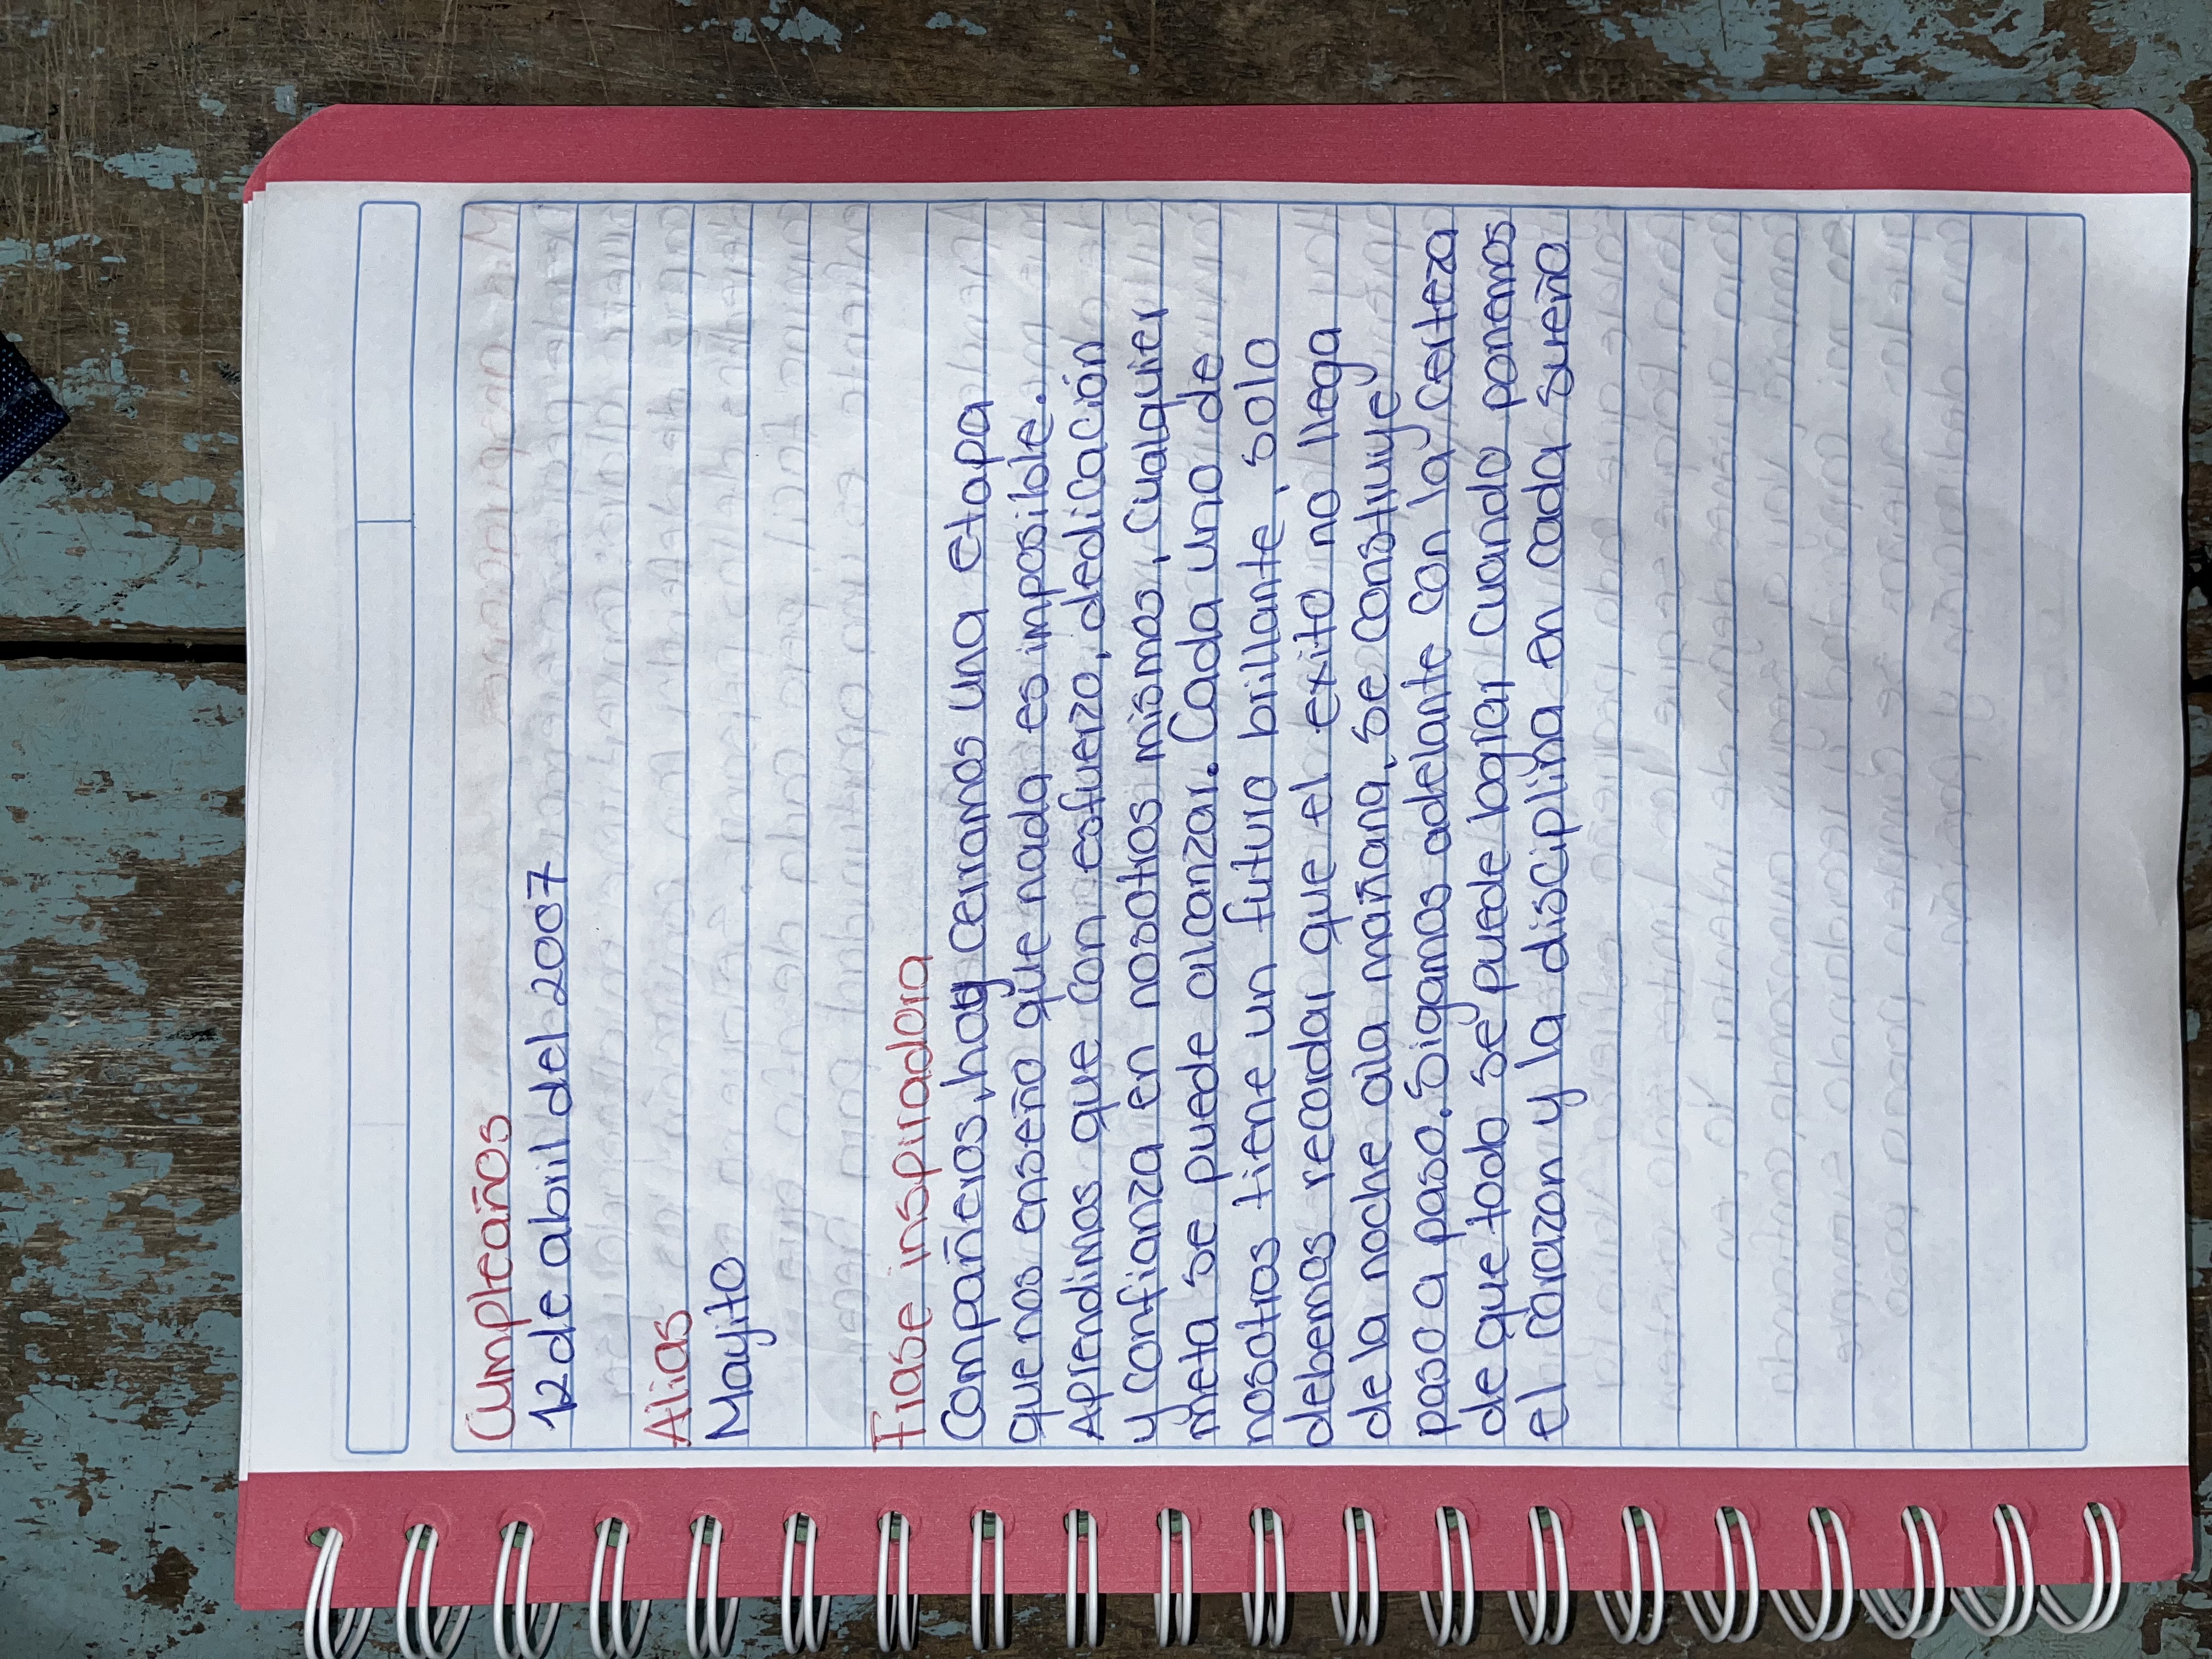 Cumpleaños
12 de abril del 2007
Alias
Mayito
Frase inspiradora
Compañeros, hoy cerramos una etapa
que nos enseño que nada es imposible.
Aprendimos que con esfuerzo, dedicación
y confianza en nosotros mismos, cualquier
meta se puede alcanzar. Cada uno de
nosotros tiene un futuro brillante, solo
debemos recordar que el exito no llega
de la noche ala mañana, se construye
paso a paso. Sigamos adelante con la certeza
de que todo se puede lograr cuando ponemos
el corazon y la disciplina en cada sueño